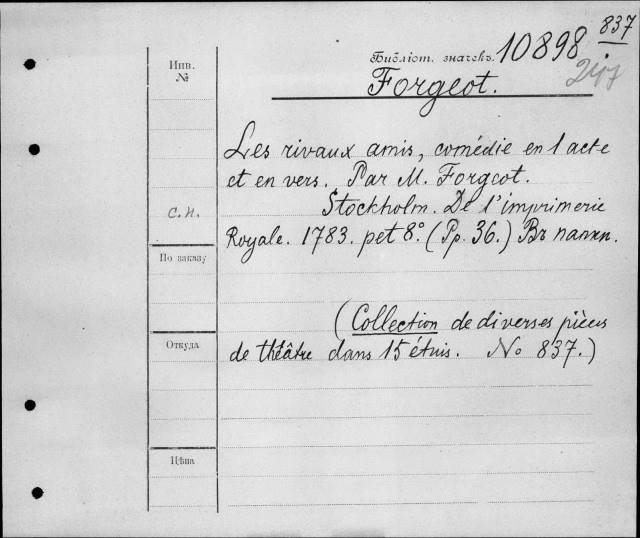 837
Инв. №
Библіот. значекъ. 10898
247
Forgeot.
Les rivaux amis, comédie en 1 acte
et en vers. Par M. Forgeot.
С.Н.
Stockholm. De l'imprimerie
Royale. 1783. pet 8°. (Pp. 36.) Въ папкѣ.
По заказу
(Collection de diverses pièces
Откуда
de théâtre dans 15 étuis. No 837.)
Цѣна